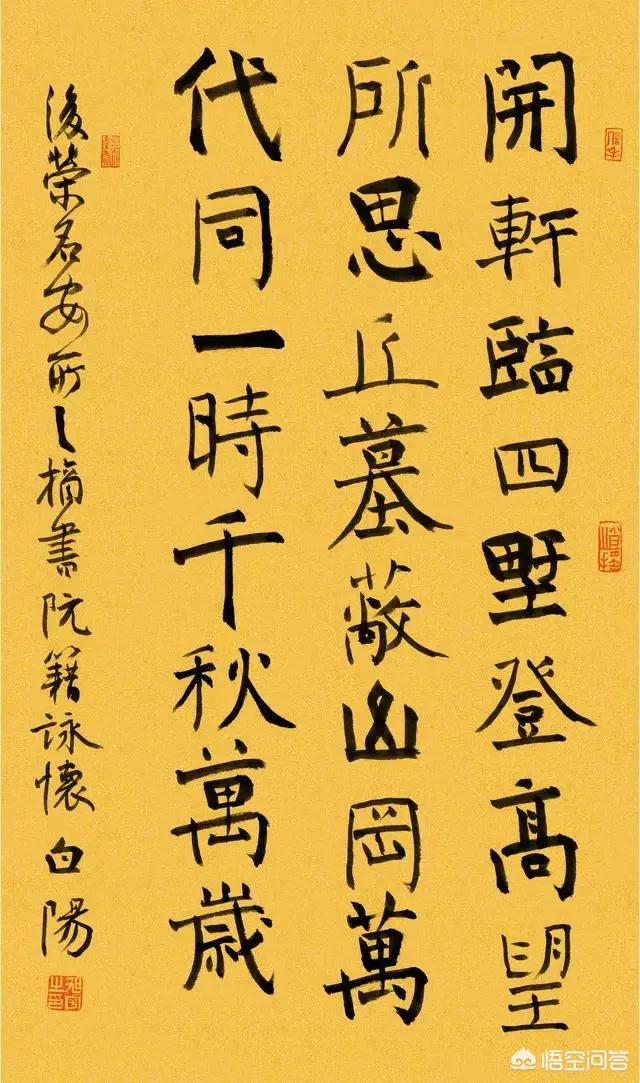 開軒臨四野登高望
所思丘墓蔽山岡萬
代同一時千秋萬歲
後榮名安所之摘書阮籍詠懷 白陽
悟空问答